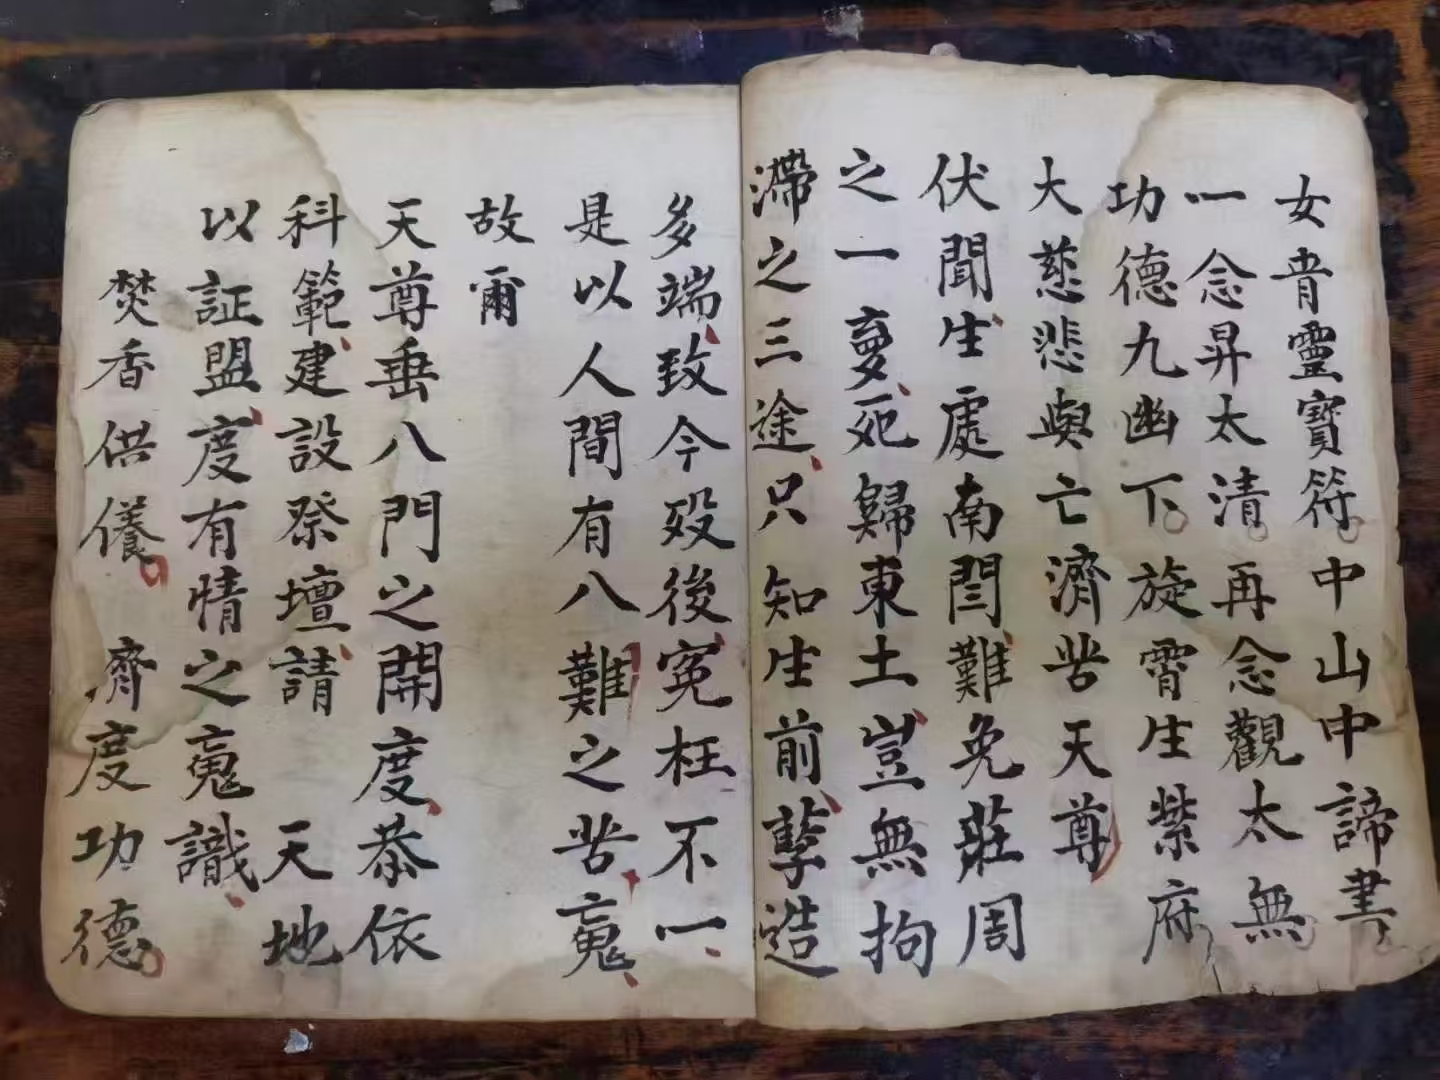 女青靈寳符中山中諦書
一念昇太清再念觀太無
功德九幽下旋霄生紫府
大慈悲與亡濟苦天尊
伏聞生處南閻難免莊周
之一夢死歸東土豈無拘
滯之三途只知生前孽造
多端致今殁後寃枉不一
是以人間有八難之苦䰟
故爾
天尊垂八門之開度恭依
科範建設祭壇請 天地
以証盟度有情之䰟識
焚香供養 濟度功德